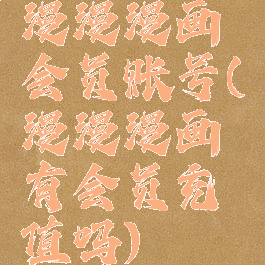 漫漫漫画
会员账号(
漫漫漫画
有会员充
值吗)